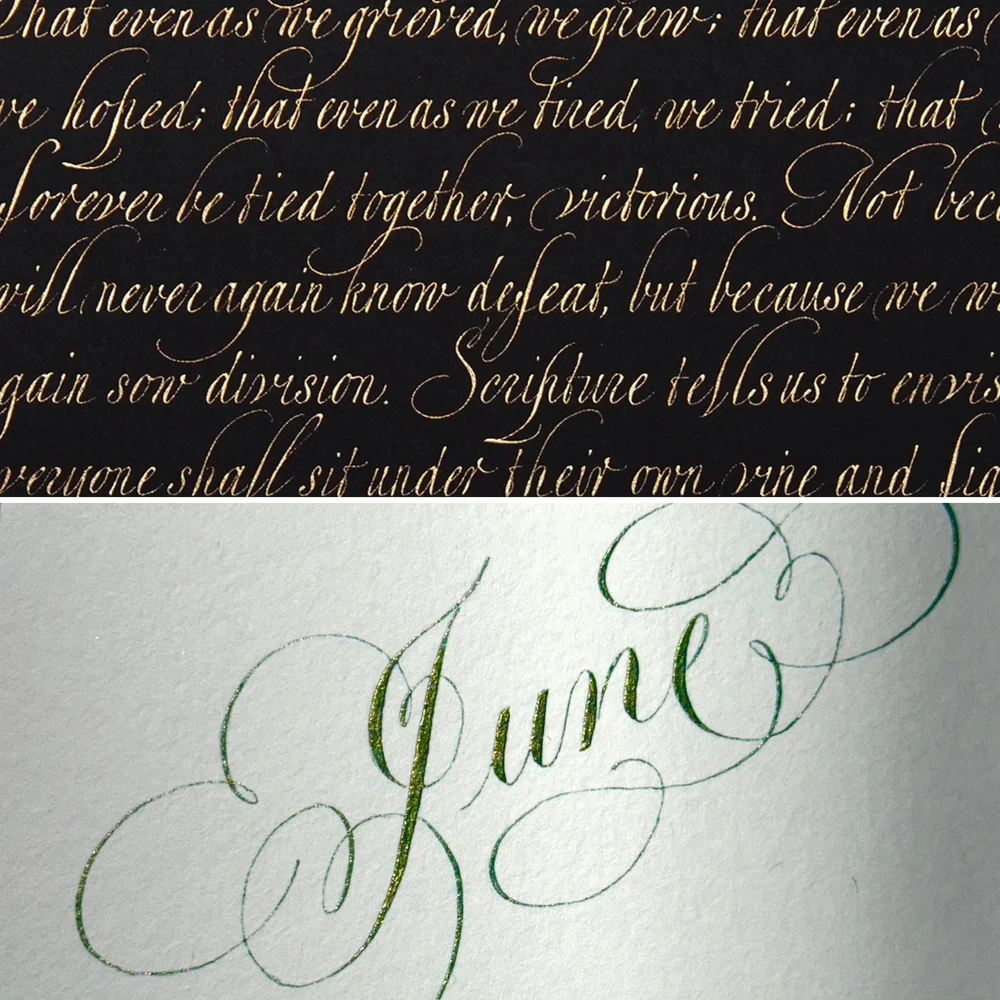 that even as we grieved, we grew; that even as
we hoped; that even as we tired, we tried: that
forever be tied together, victorious. Not bec
will never again know defeat, but because we w
gain sow division. Scripture tells us to envis
veryone shall sit under their own vine and fig
June